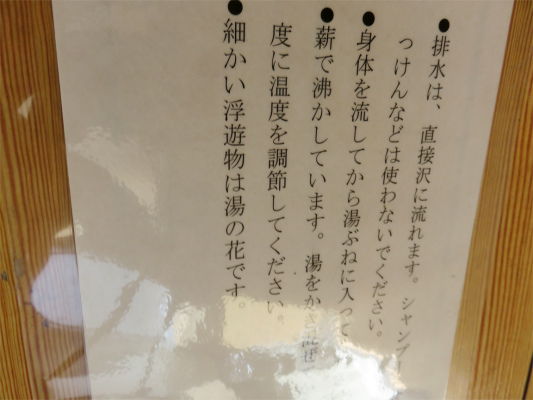 ●排水は、直接沢に流れます。シャンプー
っけんなどは使わないでください。
●身体を流してから湯ぶねに入って
●薪で沸かしています。湯をかき混ぜ
度に温度を調節してください。
●細かい浮遊物は湯の花です。